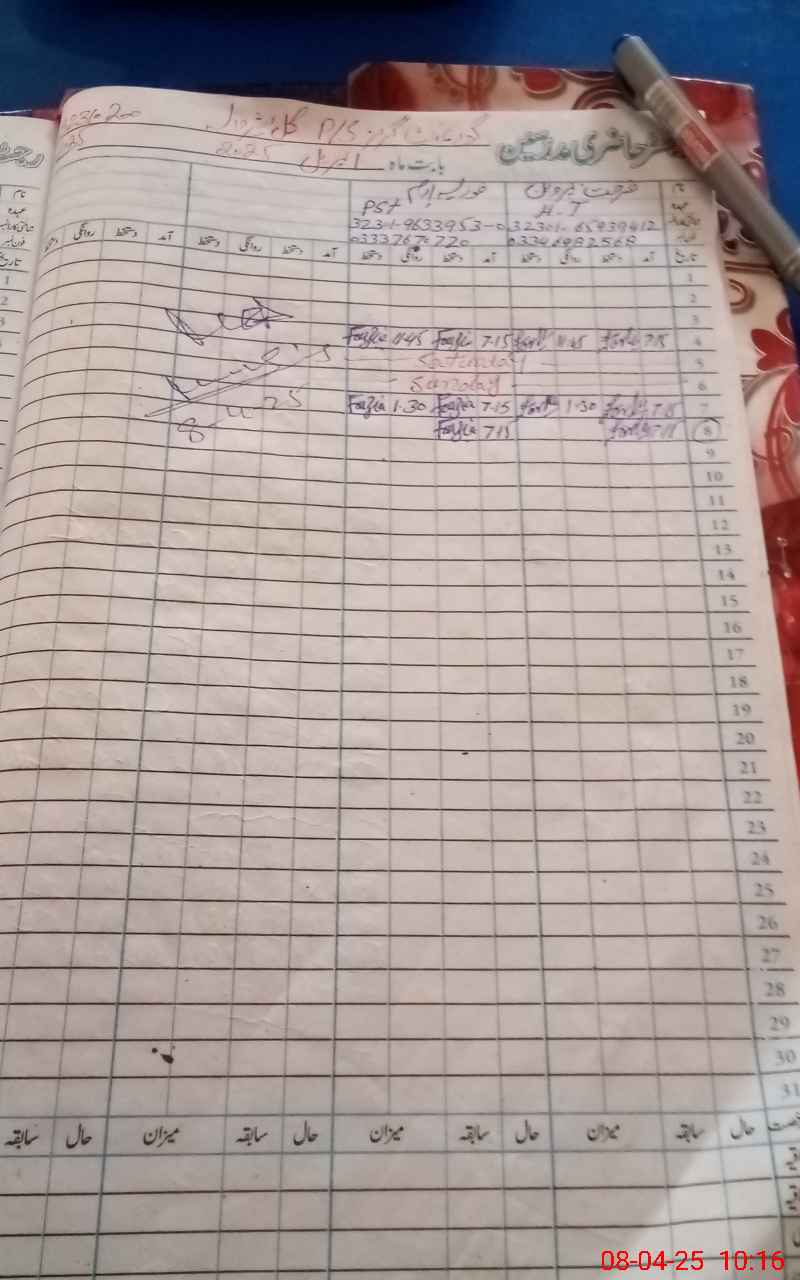 رجسٹر حاضری مدرسین
گورنمنٹ گرلز P/S
بابت ماہ اپریل 2025
نام فرحت پروین فوزیہ ارم
عہدہ H.T PST
32301-65939412 3231-9633953-0
فون نمبر 03346982568 03337670720
تاریخ آمد دستخط روانگی دستخط آمد دستخط روانگی دستخط آمد دستخط روانگی دستخط آمد دستخط روانگی دستخط
1
2
3
Fozia 11.45 Fozia 7.15 11.45 7.15 4
Saturday 5
Sunday 6
Fozia 1.30 Fozia 7.15 1.30 7.15 7
Fozia 7.15 7.15 8
8-4-25
9
10
11
12
13
14
15
16
17
18
19
20
21
22
23
24
25
26
27
28
29
30
31
حال سابقہ میزان حال سابقہ میزان حال سابقہ میزان حال سابقہ
08-04-25 10:16